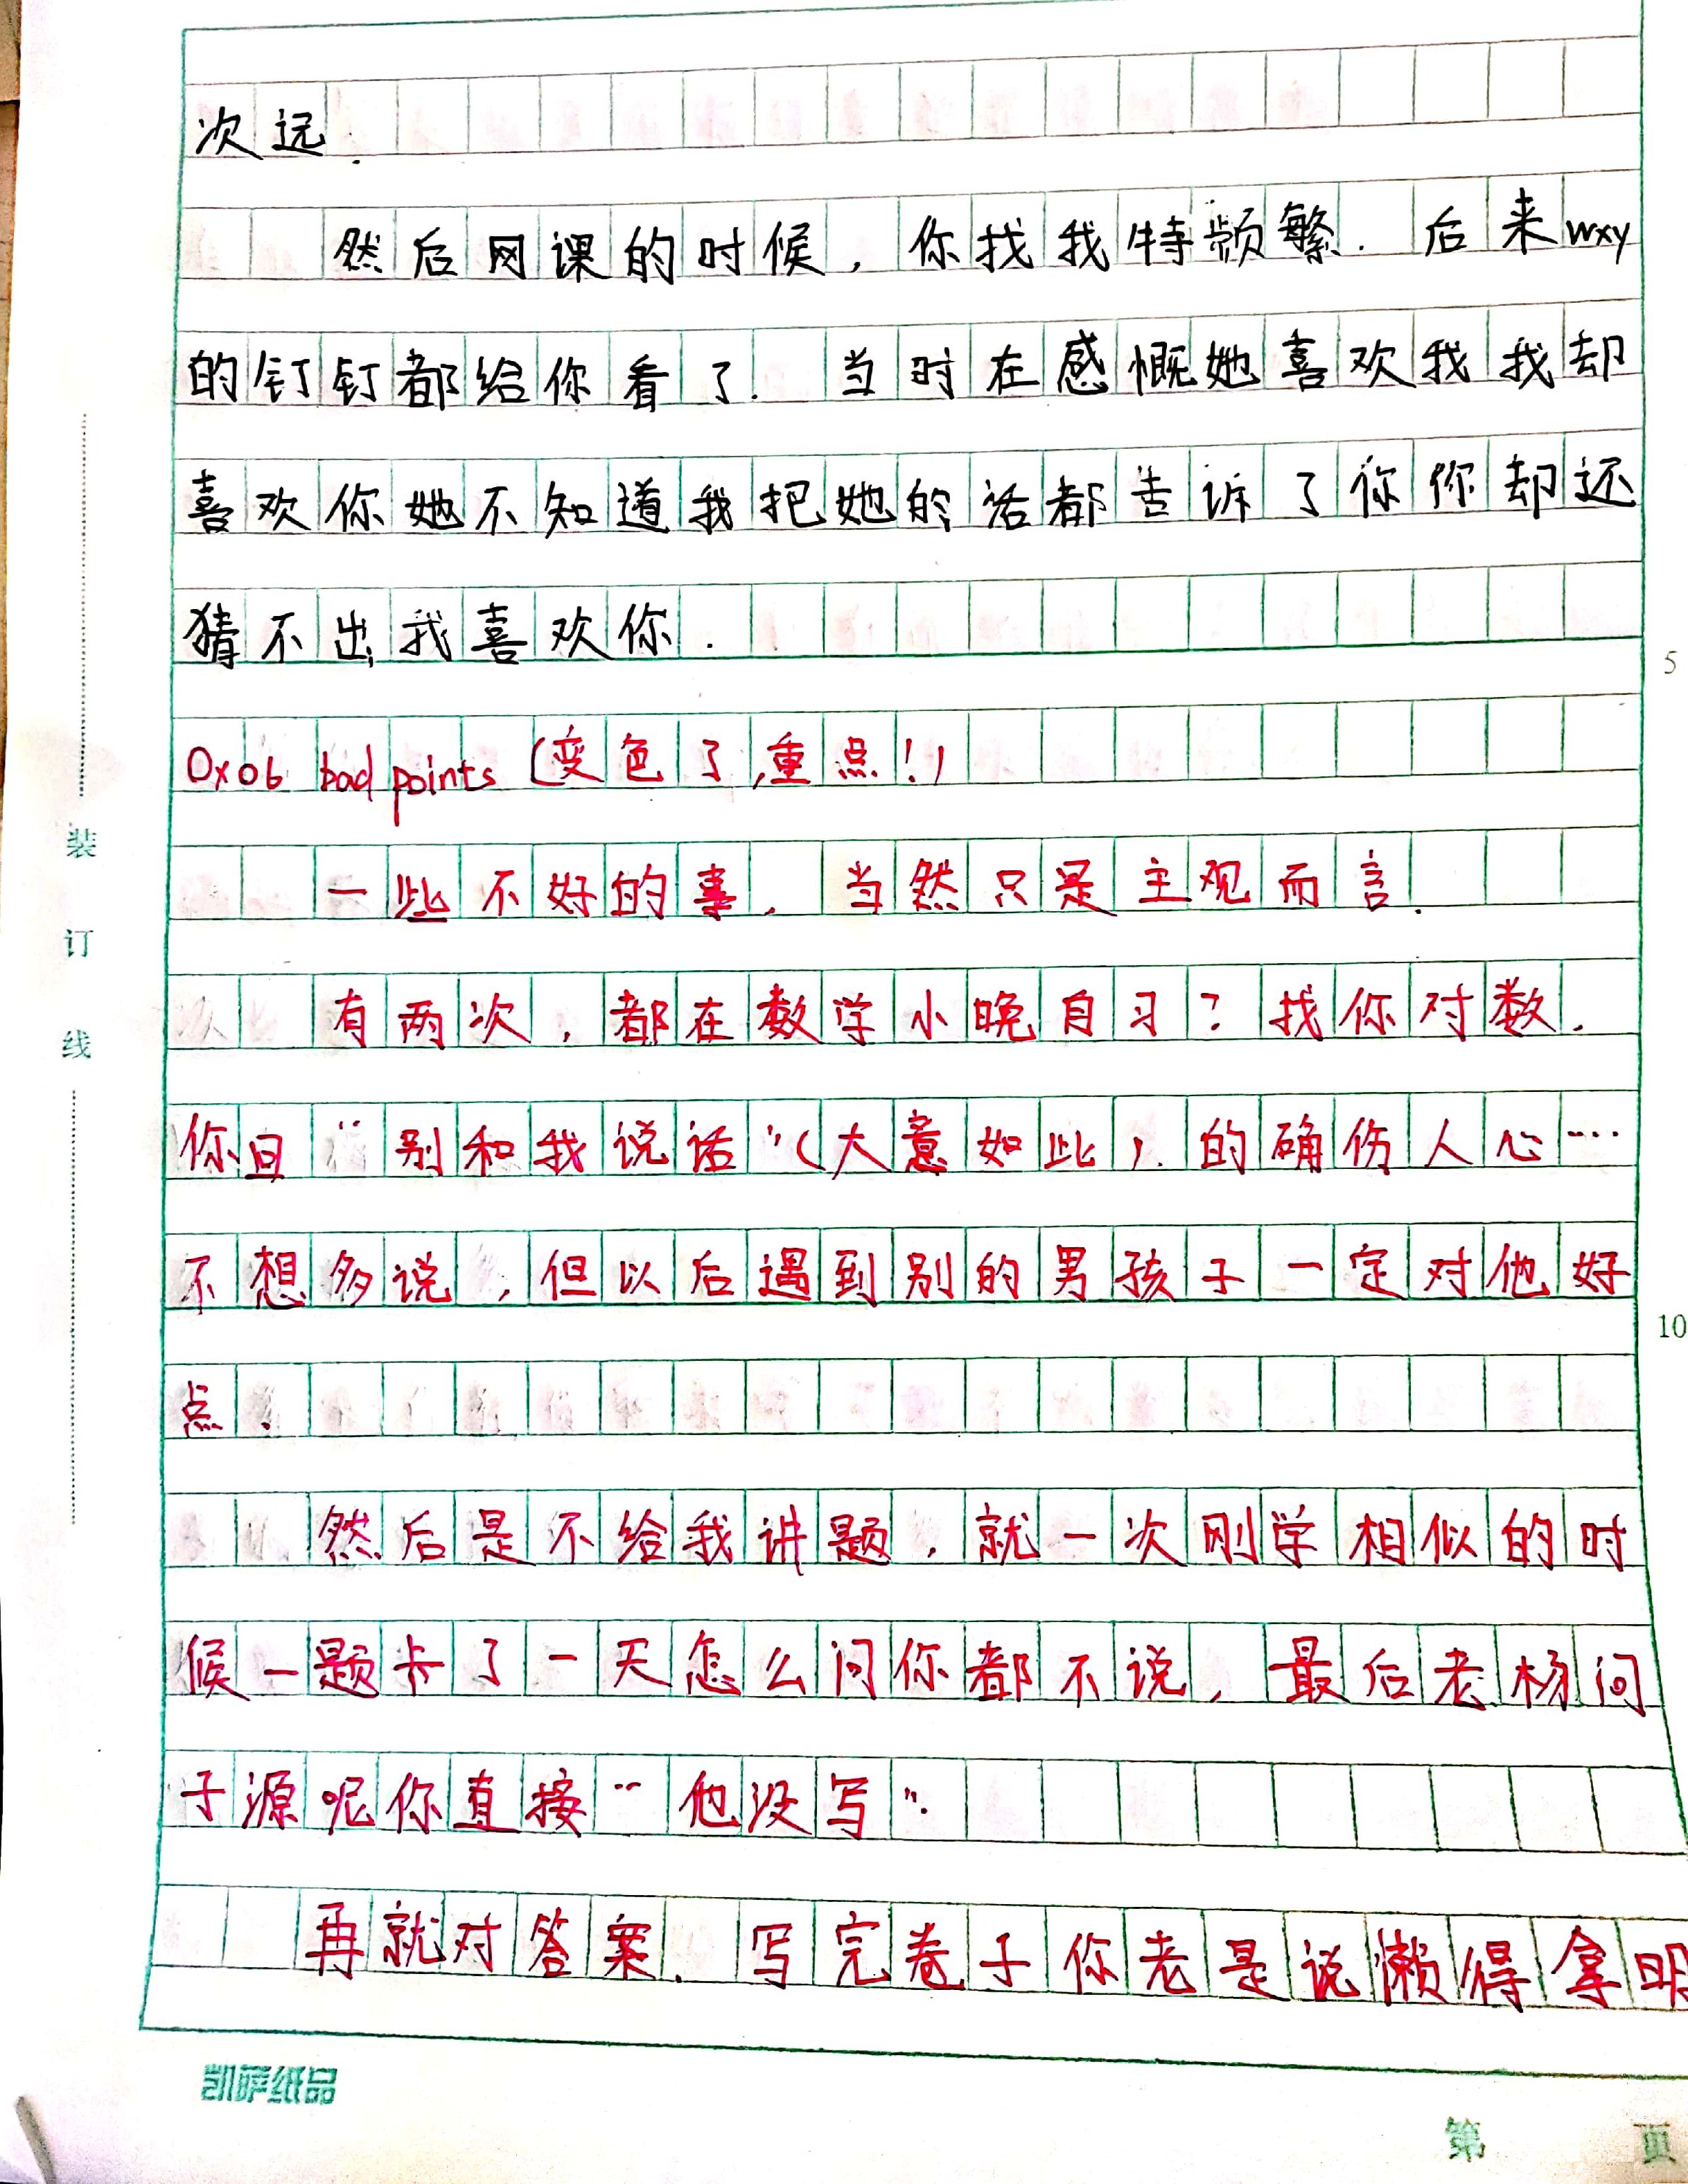 次远.
然后网课的时候,你找我特频繁.后来wxy
的钉钉都给你看了.当时在感慨她喜欢我我却
喜欢你她不知道我把她的话都告诉了你你却还
猜不出我喜欢你.
5
0x06 bad points (变色了,重点!)
一些不好的事.当然只是主观而言.
有两次,都在数学小晚自习?找你对数.
你曰“别和我说话”(大意如此).的确伤人心…
不想多说,但以后遇到别的男孩子一定对他好
10
点.
然后是不给我讲题,就一次刚学相似的时
候一题卡了一天怎么问你都不说,最后老杨问
子源呢你直接“他没写”.
再就对答案.写完卷子你老是说懒得拿明
装
订
线
凯萨纸品
第 页